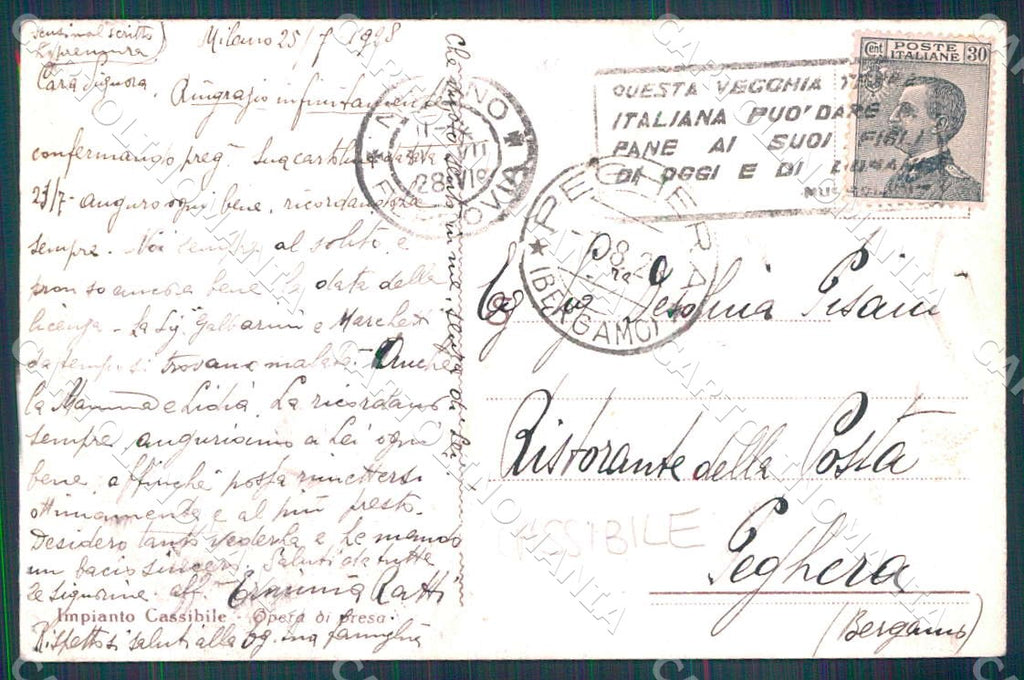 scusi mal scritto
la premura
Milano 25/7 1928
Cara Signora,
Ringrazio infinitamente
confermando preg. Sua cartolina data
23/7 - auguro ogni bene, ricordandola
sempre. Noi al solito e
ancora bene la data della
licenza - La Sig. Galbarini e Marchetti
da tempo si trovano malate - Anche
la Mamma e Lidia, La ricordano
sempre auguriamo a Lei ogni
bene, affinché possa rimettersi
ottimamente e al più presto.
Desidero tanto vederla e Le mando
un bacio sincero. Saluti da tutte
le signorine. aff. Erminia Ratti
Impianto Cassibile - Opera di presa
Rispettosi saluti alla Sg. ma famiglia
MILANO
FERROVIA
QUESTA VECCHIA TERRA
ITALIANA PUO' DARE IL
PANE AI SUOI FIGLI
DI OGGI E DI DOMANI
MUSSOLINI
Cent
POSTE
ITALIANE
30
PEGHERA
(BERGAMO)
8.28
Pisani
Ristorante della Posta
CASSIBILE
Peghera
(Bergamo)
CARTOLINIA